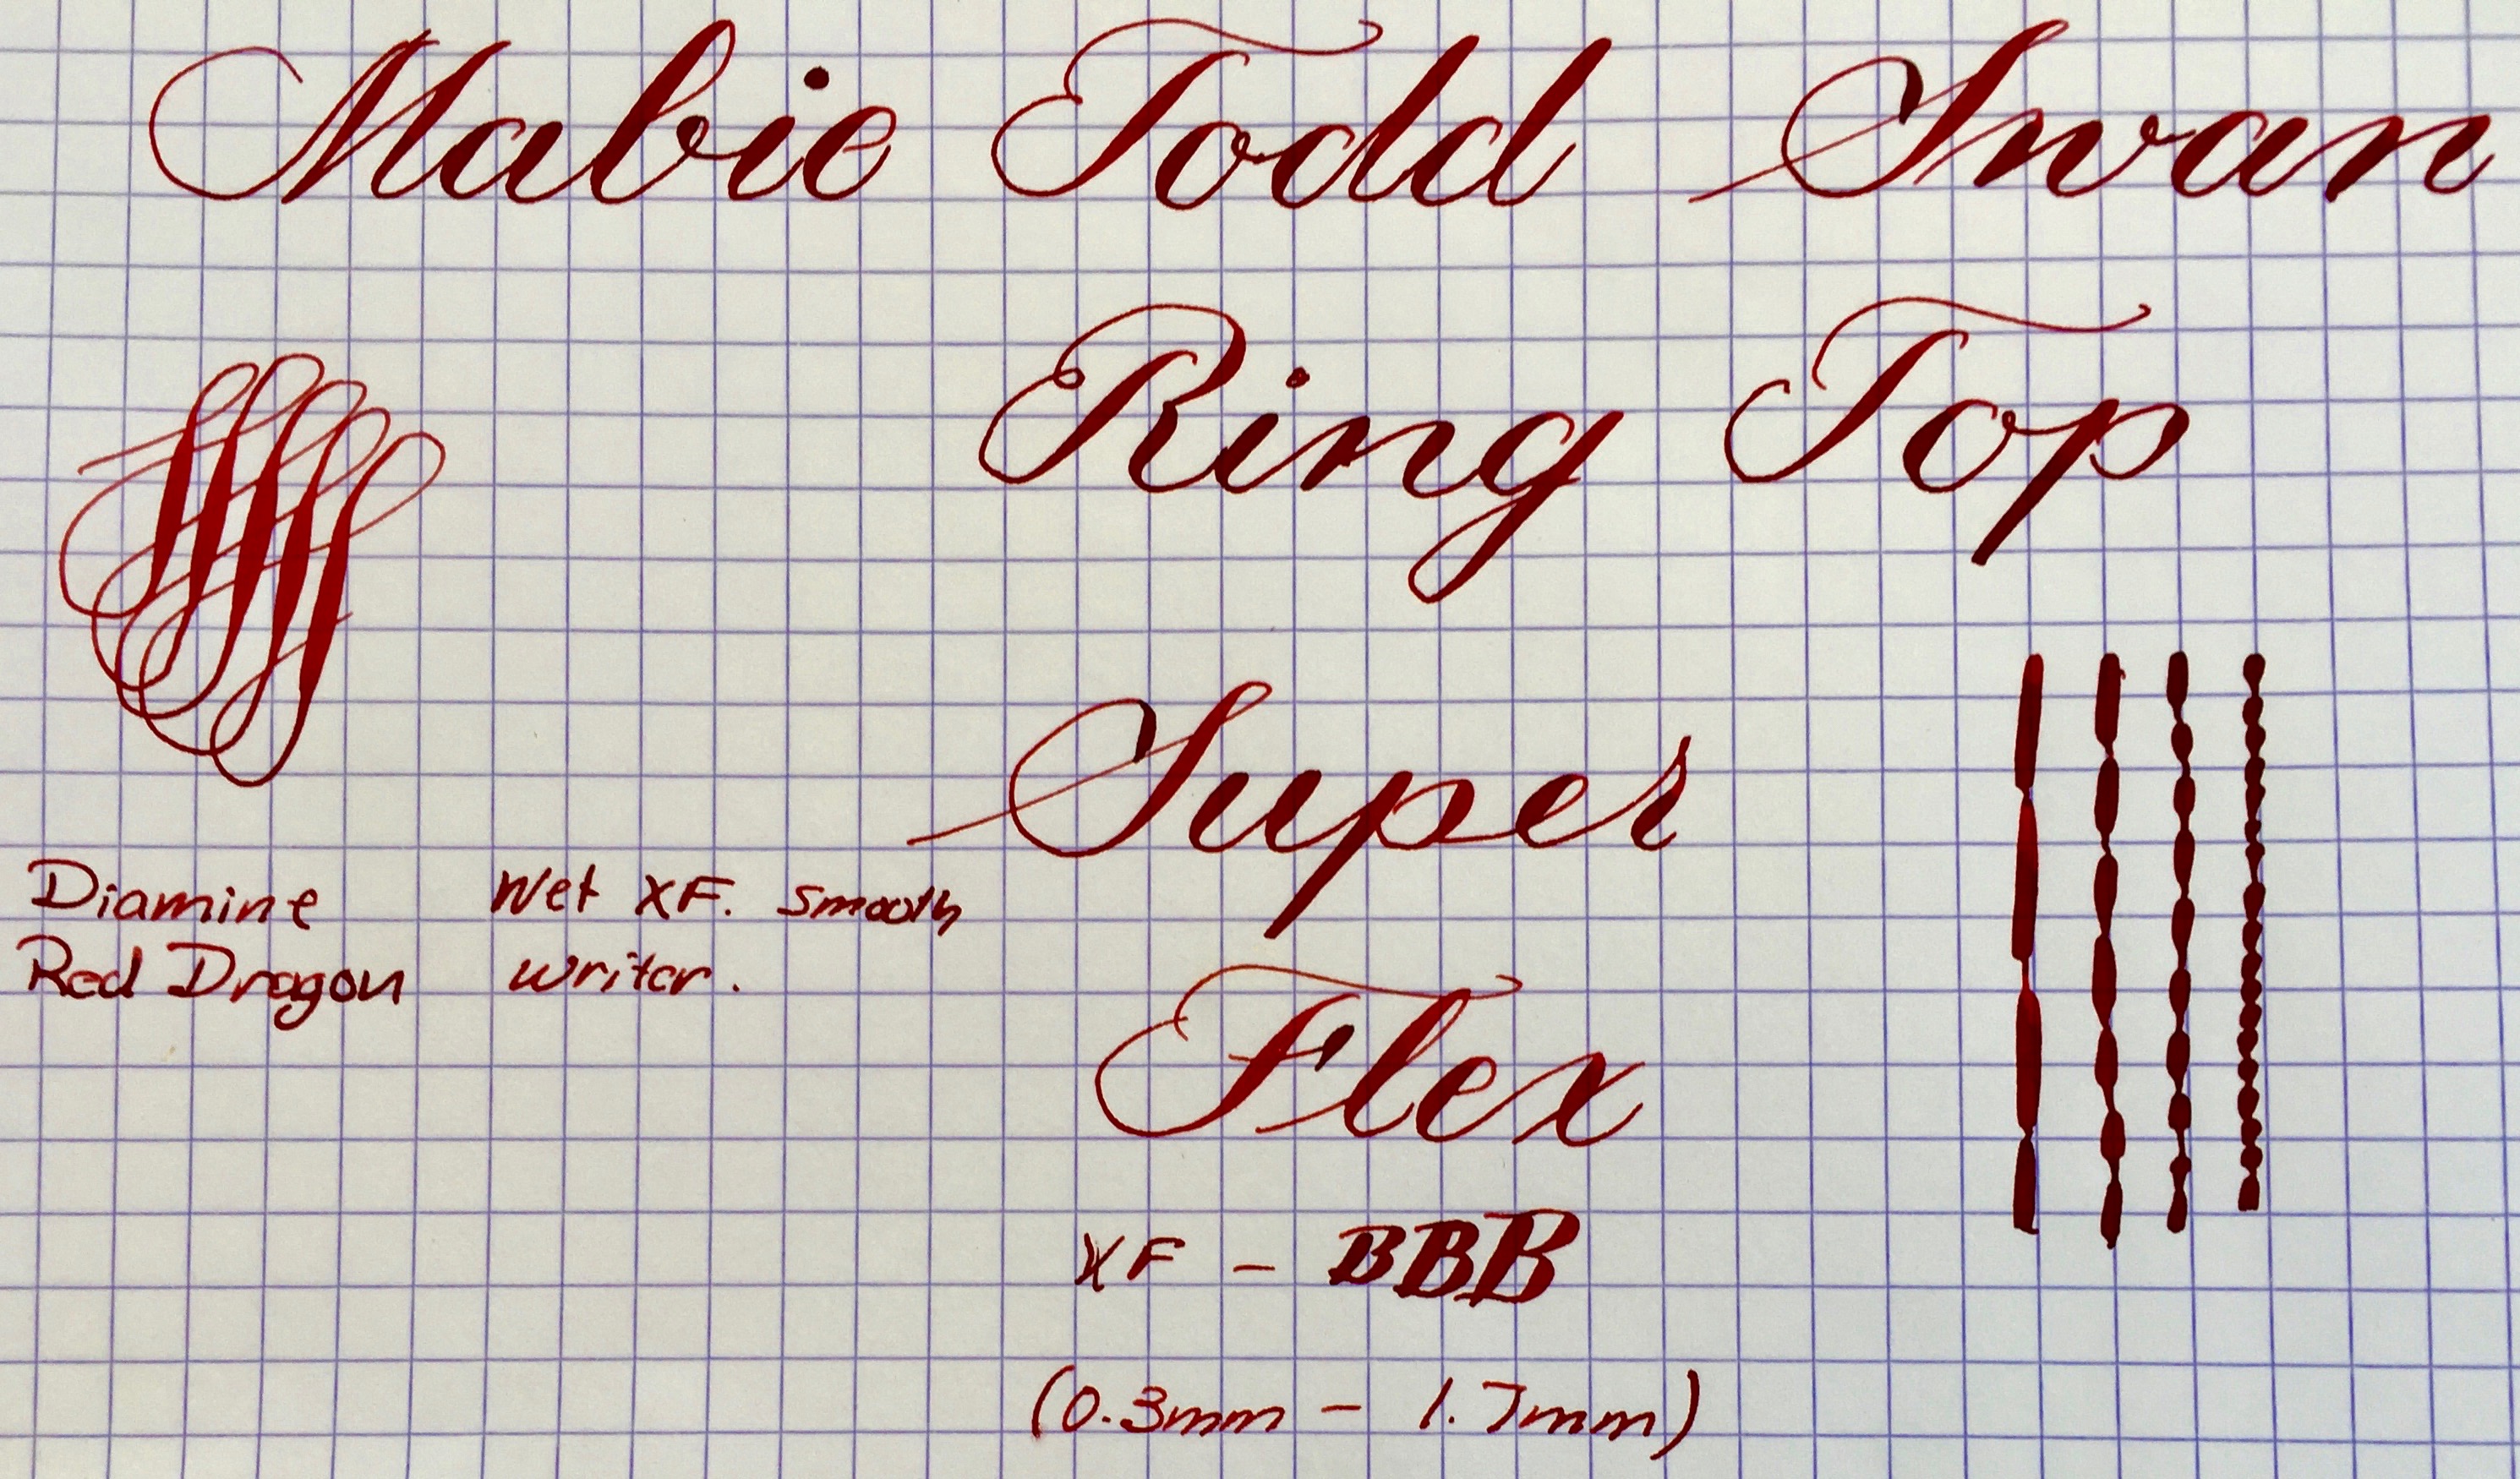 Mabie Todd Swan
Ring Top
Super
Diamine
Red Dragon
Wet XF. Smooth
writer.
Flex
XF - BBB
(0.3mm - 1.7mm)